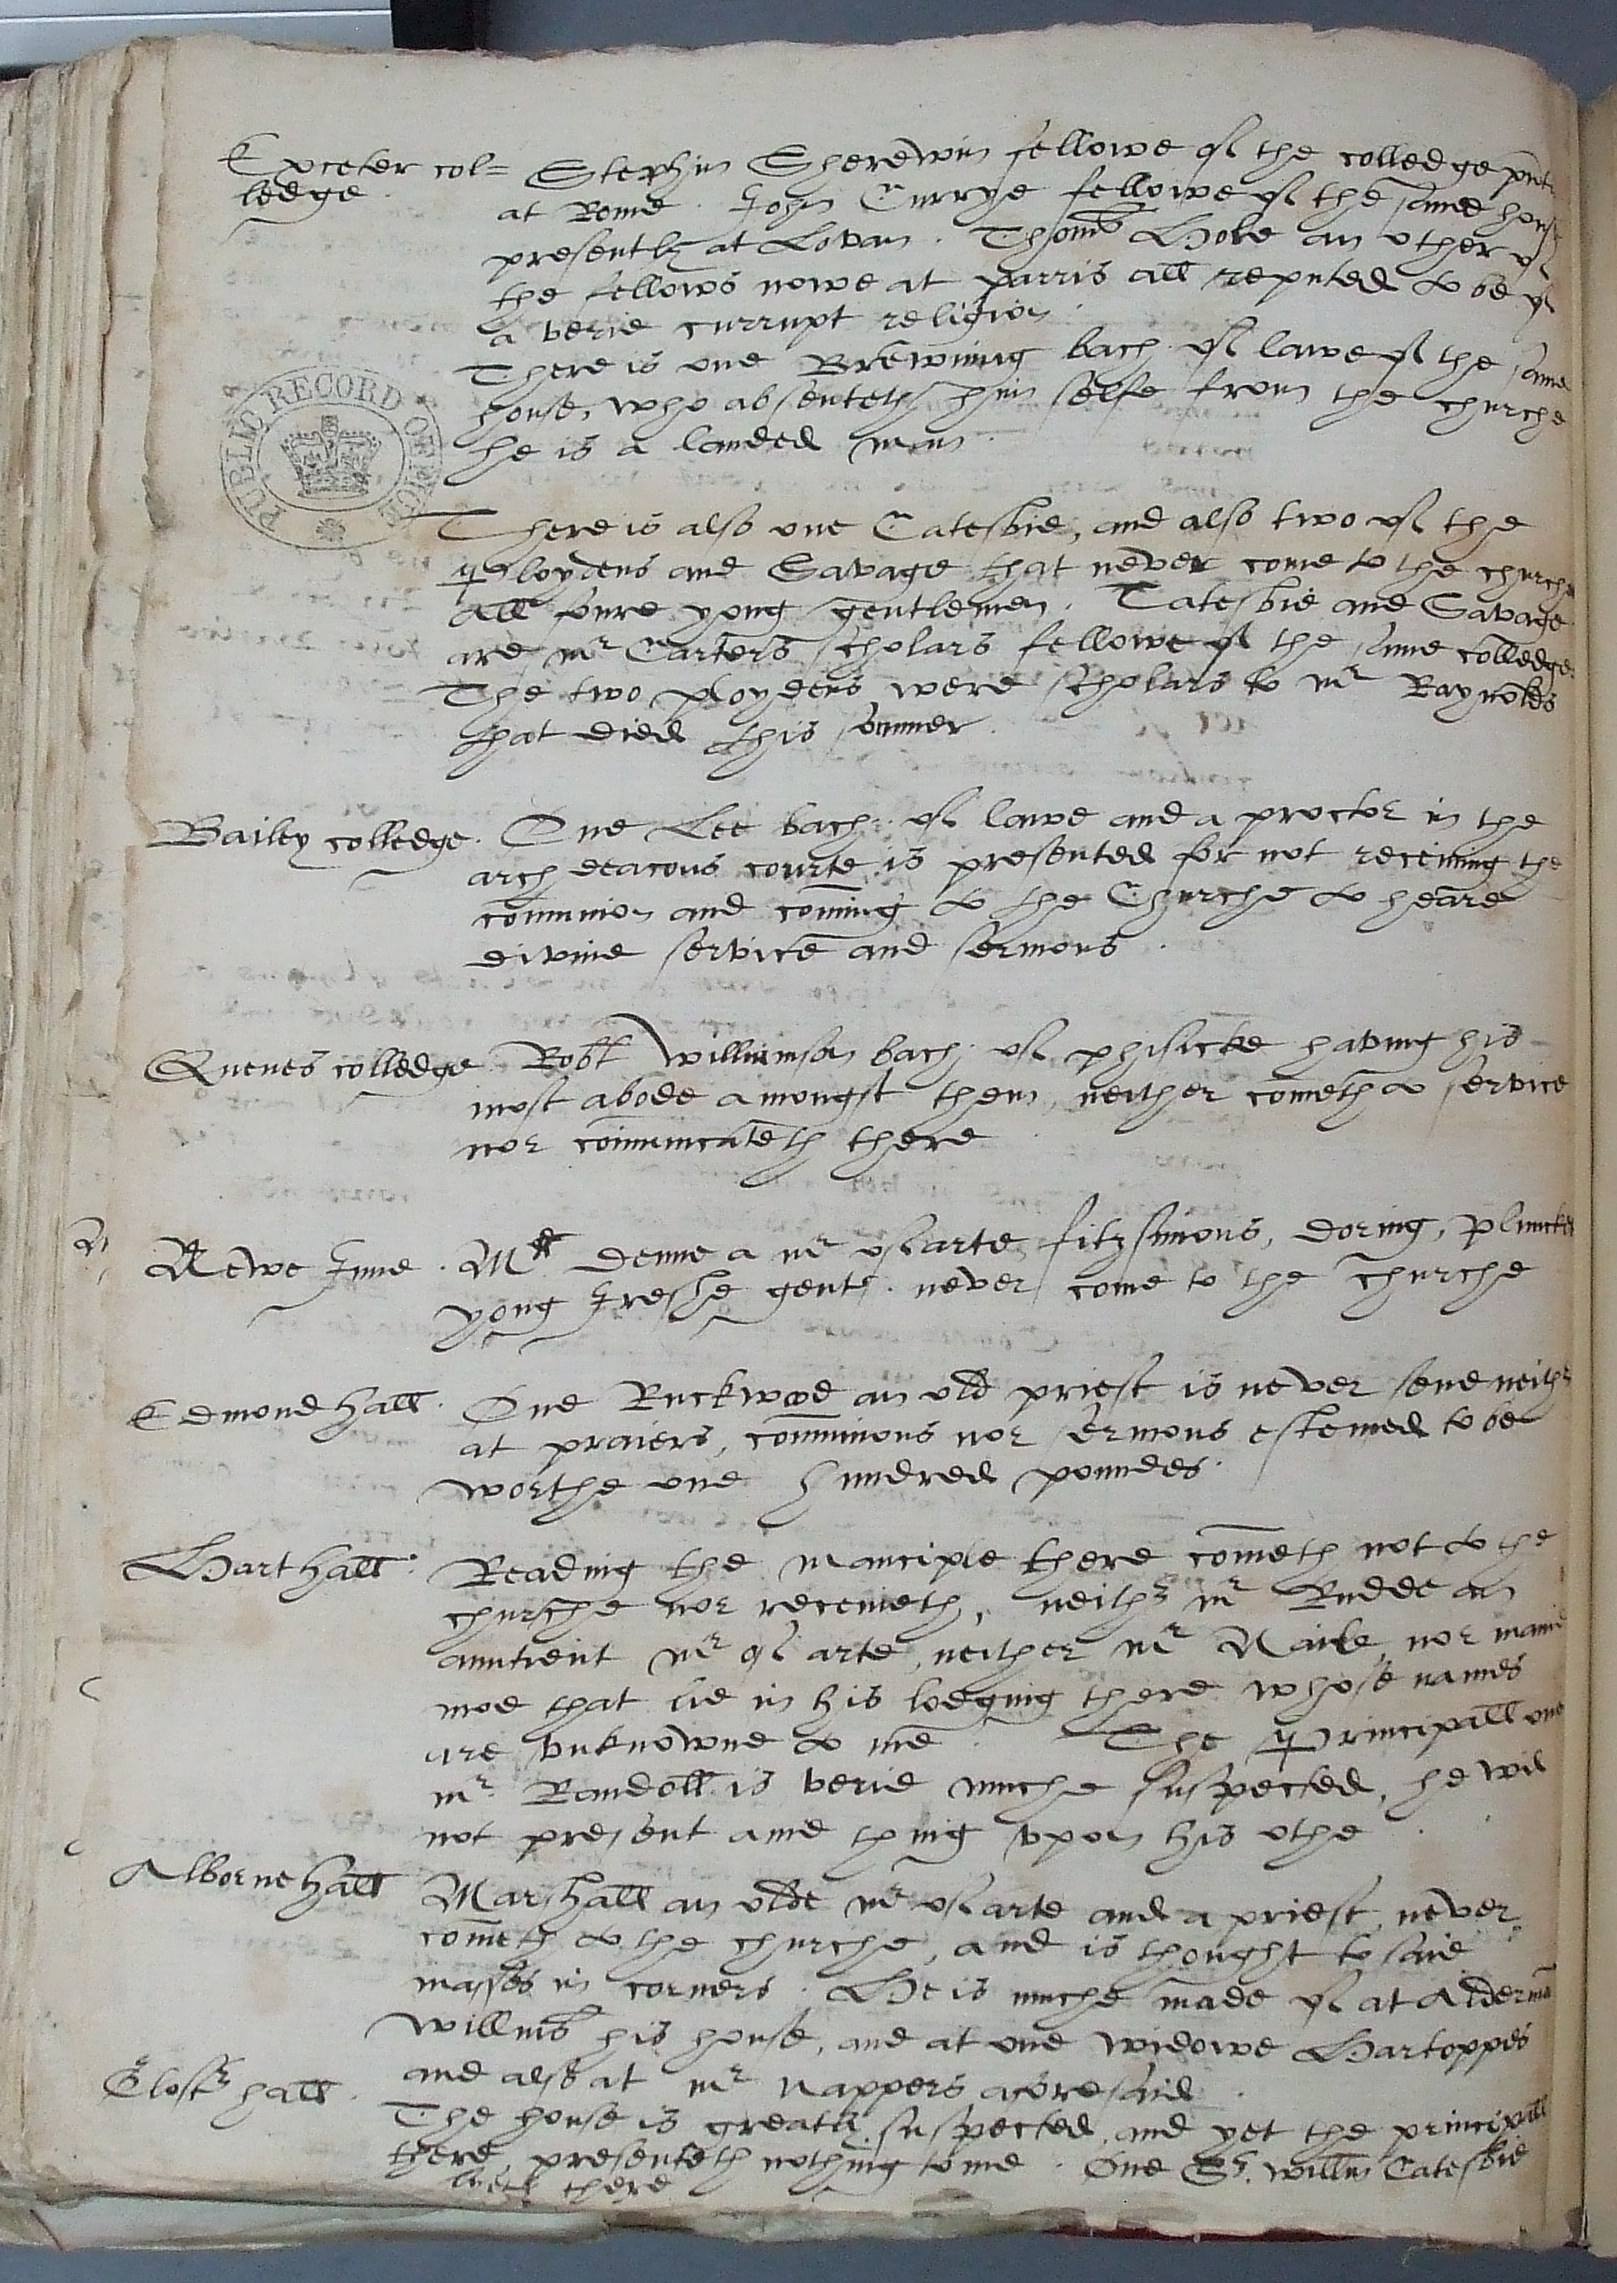 Exceter col=
ledge.
Stephin Sherewin fellowe of the colledge pnt
at Rome. John Currye fellowe of the same house
presently at Lovan. Thoms Hole an other of
the fellows nowe at parris all reputed to be of
a verie currupt religion.
There is one Brewning bach. of lawe of the same
house, who absenteth him selfe from the churche
he is a landed man.
PUBLIC RECORD OFFICE
There is also one Catesbie, and also two of the
Ployдens and Savage that never come to the churche
all foure yong gentlemen. Catesbie and Savage
are mr Carters scholars fellowe of the same colledge.
The two ploydens were scholars to mr Raynolds
that died this somer.
Bailey colledge.
One Lee bach. of lawe and a proctor in the
archdeacons courte is presented for not receiuing the
comunion and coming to the Churche to heare
divine service and sermons.
Quenes colledge.
Robt Williamson bach. of phisicke having his
most abode amongst them, neither cometh to service
nor comunicateth there
Newe Inne.
Mr Denne a mr of arte, fitzsimons, Doring, Pluncket
yong Ireshe gents. never come to the churche
Edmond hall.
One Ruckwood an old priest is never sene neithr
at praiers, comunions nor sermons estemed to be
worthe one hundred poundes.
Hart hall.
Reading the manciple there cometh not to the
churche nor receiueth, neithr mr Rudde an
auntient mr of arte, neither mr Naile nor manie
moe that lie in his lodging there whose names
are vnknowne to me. The Principall one
mr Randoll is verie muche suspected, he wil
not present anie thing vpon his othe.
Alborne hall
Marshall an olde mr of arte and a priest, never
cometh to the churche, and is thought to saie
masses in corners. He is muche made of at Alderman
Willms his house, and at one widowe Hartoppes
and also at mr Nappers aforesaid.
Glostr hall.
The house is greatly suspected, and yet the principall
there presenteth nothing to me. One Sr. Willm Catesbie
lieth there